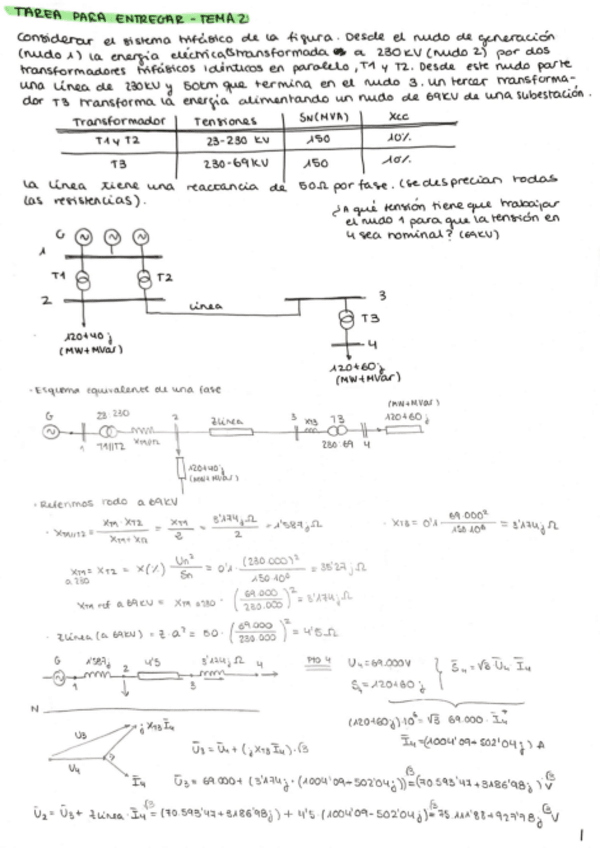 TAREA PARA ENTREGAR - TEMA 2
Considerar el sistema trifásico de la figura. Desde el nudo de generación
(nudo 1) la energía eléctrica es transformada a 230 KV (nudo 2) por dos
transformadores trifásicos idénticos en paralelo, T1 y T2. Desde este nudo parte
una línea de 230KV y 50km que termina en el nudo 3. Un tercer transforma-
dor T3 transforma la energía alimentando un nudo de 69KV de una subestación.
Transformador Tensiones SN(MVA) Xcc
T1 y T2 23-230 KV 150 10%
T3 230-69KV 150 10%
La línea tiene una reactancia de 50Ω por fase. (se desprecian todas
las resistencias).
¿A qué tensión tiene que trabajar
el nudo 1 para que la tensión en
4 sea nominal? (69KV)
G
1
T1 T2
2 Línea 3
T3
4
120+40j
(MW+MVar)
120+60j
(MW+MVar)
· Esquema equivalente de una fase
G 23:230 2 Zlínea 3 XT3 T3 (MW+MVar) 120+60j
1 T1//T2 XT1//T2 230:69 4
120+40j
(MW+MVar)
· Referimos todo a 69KV
· XT1//T2 = XT1·XT2 / XT1+XT2 = XT1 / 2 = 3'174j Ω / 2 = 1'587j Ω
· XT3 = 0'1 · 69.000² / 150·10⁶ = 3'174j Ω
XT1 = XT2 = X(%) Un² / Sn = 0'1 · (230.000)² / 150·10⁶ = 35'27j Ω
a 230
XT1 ref a 69KV = XT1 a 230 · (69.000 / 230.000)² = 3'174j Ω
· Zlínea (a 69KV) = Z · a² = 50 · (69.000 / 230.000)² = 4'5 Ω
G 1'587j 2 4'5 3'174j Ω 4
1 3
N
U3 jXT3 Ī4
U4
Ī4
U4 = 69.000V
S4 = 120+60j
S̄4 = √3 Ū4 Ī4
(120+60j)·10⁶ = √3 69.000 · Ī4*
Ī4 = (1004'09-502'04j) A
Ū3 = Ū4 + (jXT3 Ī4)·√3
Ū3 = 69.000 + (3'174j · (1004'09-502'04j))√3 = (70.593'47+3186'98j)√3 V
Ū2 = Ū3 + Zlínea · Ī4 √3 = (70.593'47+3186'98j) + 4'5 · (1004'09-502'04j)√3 = 75.111'88+927'98j √3 V
1